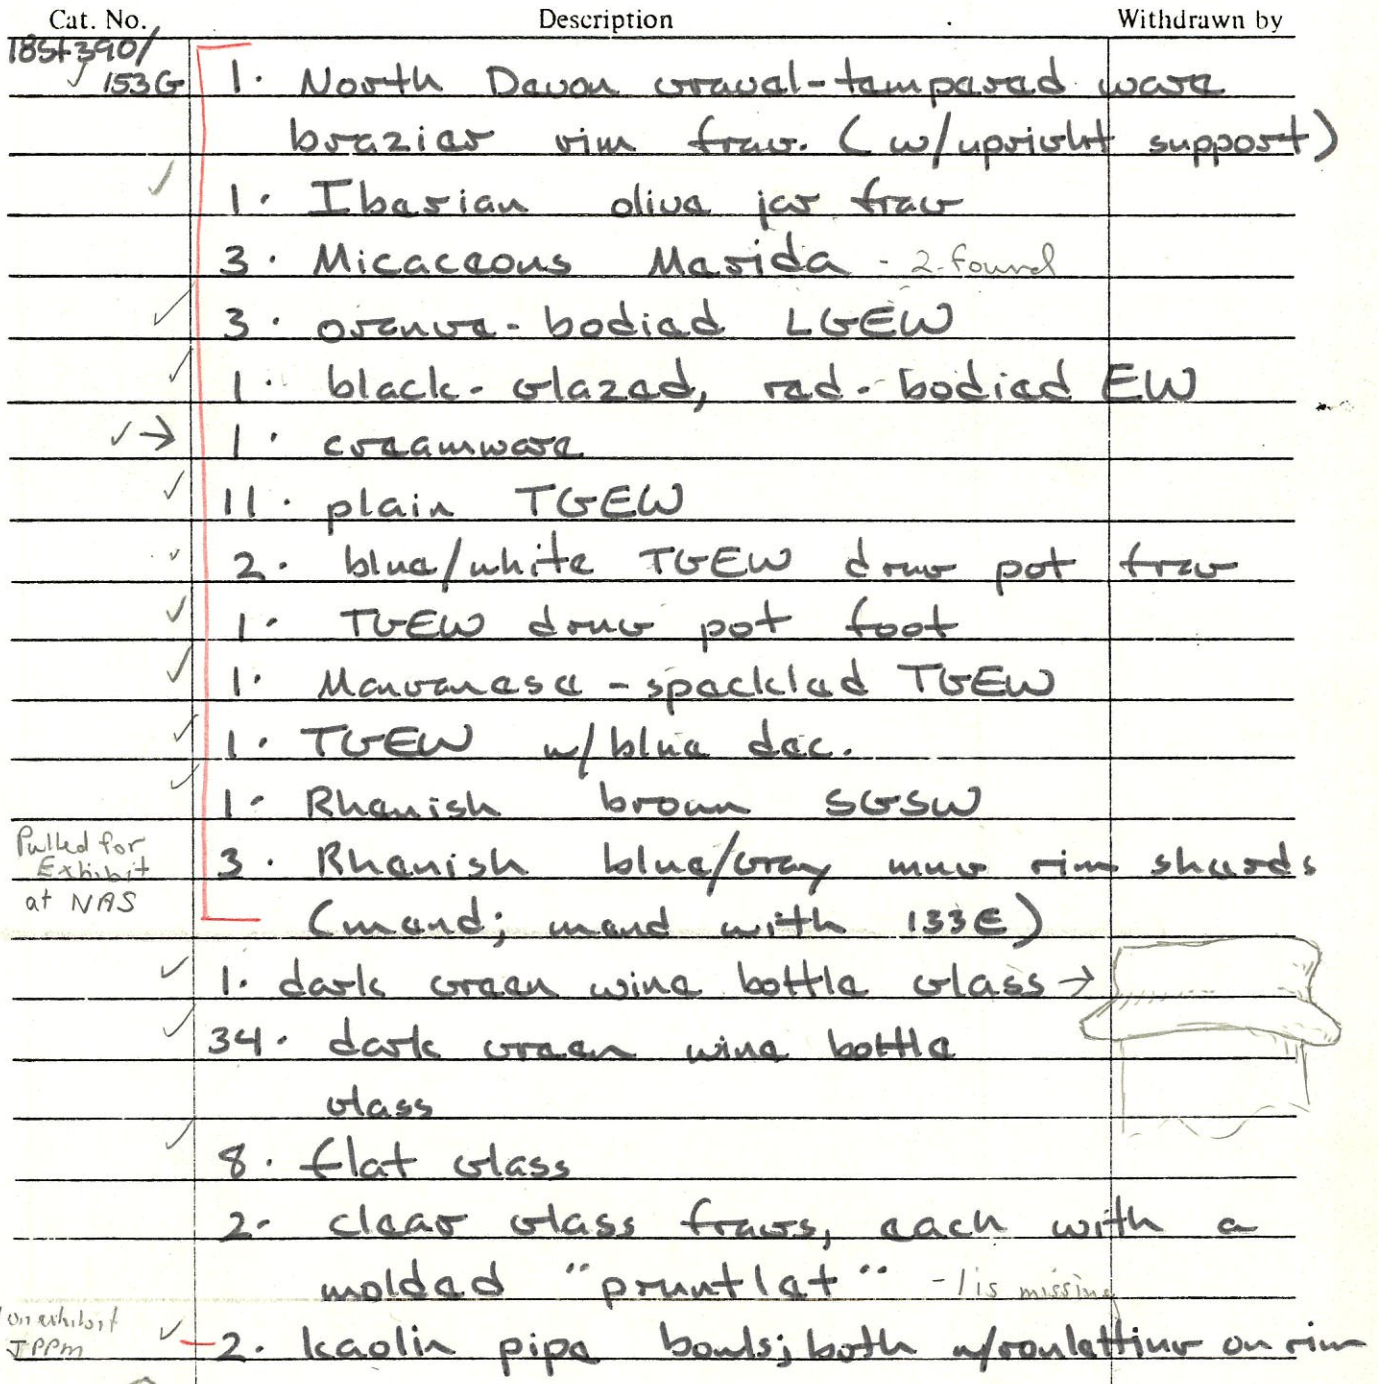 Cat. No. Description Withdrawn by
18St390/
153G 1. North Devon gravel-tempered ware
brazier rim frag. (w/upright support)
1. Iberian olive jar frag
3. Micaceous Merida - 2 found
3. orange-bodied LGEW
1. black-glazed, red-bodied EW
1. creamware
11. plain TGEW
2. blue/white TGEW drug pot frag
1. TGEW drug pot foot
1. Manganese-speckled TGEW
1. TGEW w/blue dec.
1. Rhenish brown SGSW
Pulled for
Exhibit
at NAS
3. Rhenish blue/gray mug rim sherds
(mend; mend with 133E)
1. dark green wine bottle glass →
34. dark green wine bottle
glass
8. flat glass
2. clear glass frags, each with a
molded "pruntlet" - 1 is missing
on exhibit
JPPM
2. kaolin pipe bowls; both w/rouletting on rim